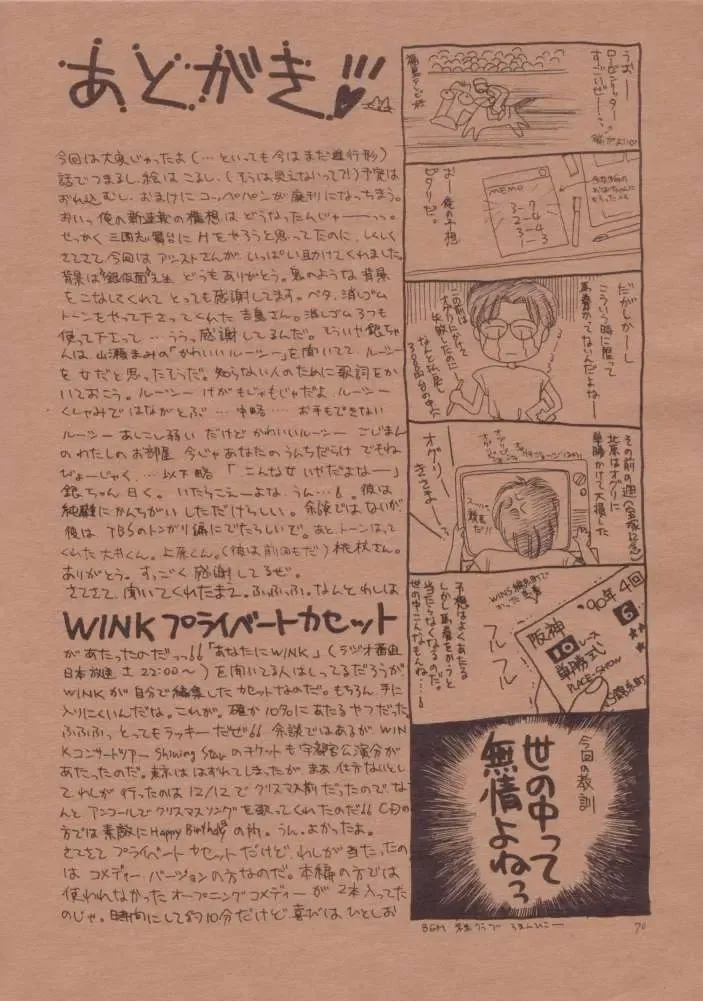 あとがき!!!
今回は大変じゃったよ(…といっても今はまだ進行形)
話でつまるし、絵はこるし、(そうは見えないって?!)予定は
おし込むし、おまけにコッペパンが廃刊になっちまう。
おいっ 俺の新連載の構想はどうなったんじゃーーっっ。
せっかく三国志舞台にHをやろうと思ってたのに、しくしく
さてさて、今回はアシストさんがいっぱい助けてくれました。
背景は"銀仮面" どうもありがとう。鬼のような背景
をこなしてくれて とっても感謝してます。ベタ、消しゴム
トーンをやって下さってくれた吉島さん。消しゴム3つも
使って下さって…ううっ感謝してるんだ。そういや銀ちゃ
んは、山瀬まみの「かわいいルーシー」を聞いてて、ルーシー
を女だと思ったそうだ。知らない人のために歌詞をか
いておこう。ルーシー けがもじゃもじゃだよ、ルーシー
くしゃみではながとぶ … 中略 … お手もできない
ルーシー あしこし弱い だけどかわいいルーシー ごじまん
のわたしのお部屋 今じゃあなたのうんちだらけ でもね
びょーじゃく、…以下略 「こんな女 いやだよなー」
銀ちゃん曰く。いたらこえーよな、うん…。彼は
純粋にかんちがいしただけらしい。余談ではないが
彼は TBSのトンガリ編にでたらしいで。あと、トーンはって
くれた大井くん。上原くん。(彼は前回もだ)桃杖さん。
ありがとう。すっごく感謝してるぜ。
さてさて、聞いてくれたまえ。ふふふふ。なんとわしは
WINKプライベートカセット
があたったのだっっ「あなたにWINK」(ラジオ番組
日本放送 土 22:00〜)を聞いてる人はしってるだろうが、
WINKが自分で編集したカセットなのだ。もちろん、手に
入りにくいんだな。これが。確か10%にあたるヤツだった。
ふふふふっ とってもラッキーだぜ 余談ではあるが WIN
Kコンサートツアー Shining Starのチケットも宇都宮公演分が
あたったのだ。東京ははずれてしまったが まあ仕方ないとし
て、わしが行ったのは12/12で クリスマス前だったので、な
んと アンコールでクリスマスソングを歌ってくれたのだ
方では素敵に Happy Birthday の所。うん、よかったよ。
さてさて プライベートカセットだけど、わしが当たったの
はコメディーバージョンの方なのだ。本編の方では
使われなかった オープニングコメディーが2本入ってた
のじゃ。時間にして約10分だけど 喜びは、ひとしお
うおーー
ローゼンリッター
すごいぜーー
福島テレビ杯
おー俺の予想
ピタリだ。
MEMO
3-7
2-4
3-4
1-3
だがしかーし
こういう時に限って
馬券かってないんだよねー
その前の週(宝塚記念)
北京はオグリに
単勝かけて大損した
オグリー
きさまー
予想はよくあたる
しかし馬券をかうと
当たらなくなるのだ。
世の中こんなもんね…
フルフル
'90年 4回
阪神 6
10レース
単勝式
PLACE-SHOW
今回の教訓
世の中って
無情よねっ
BGM